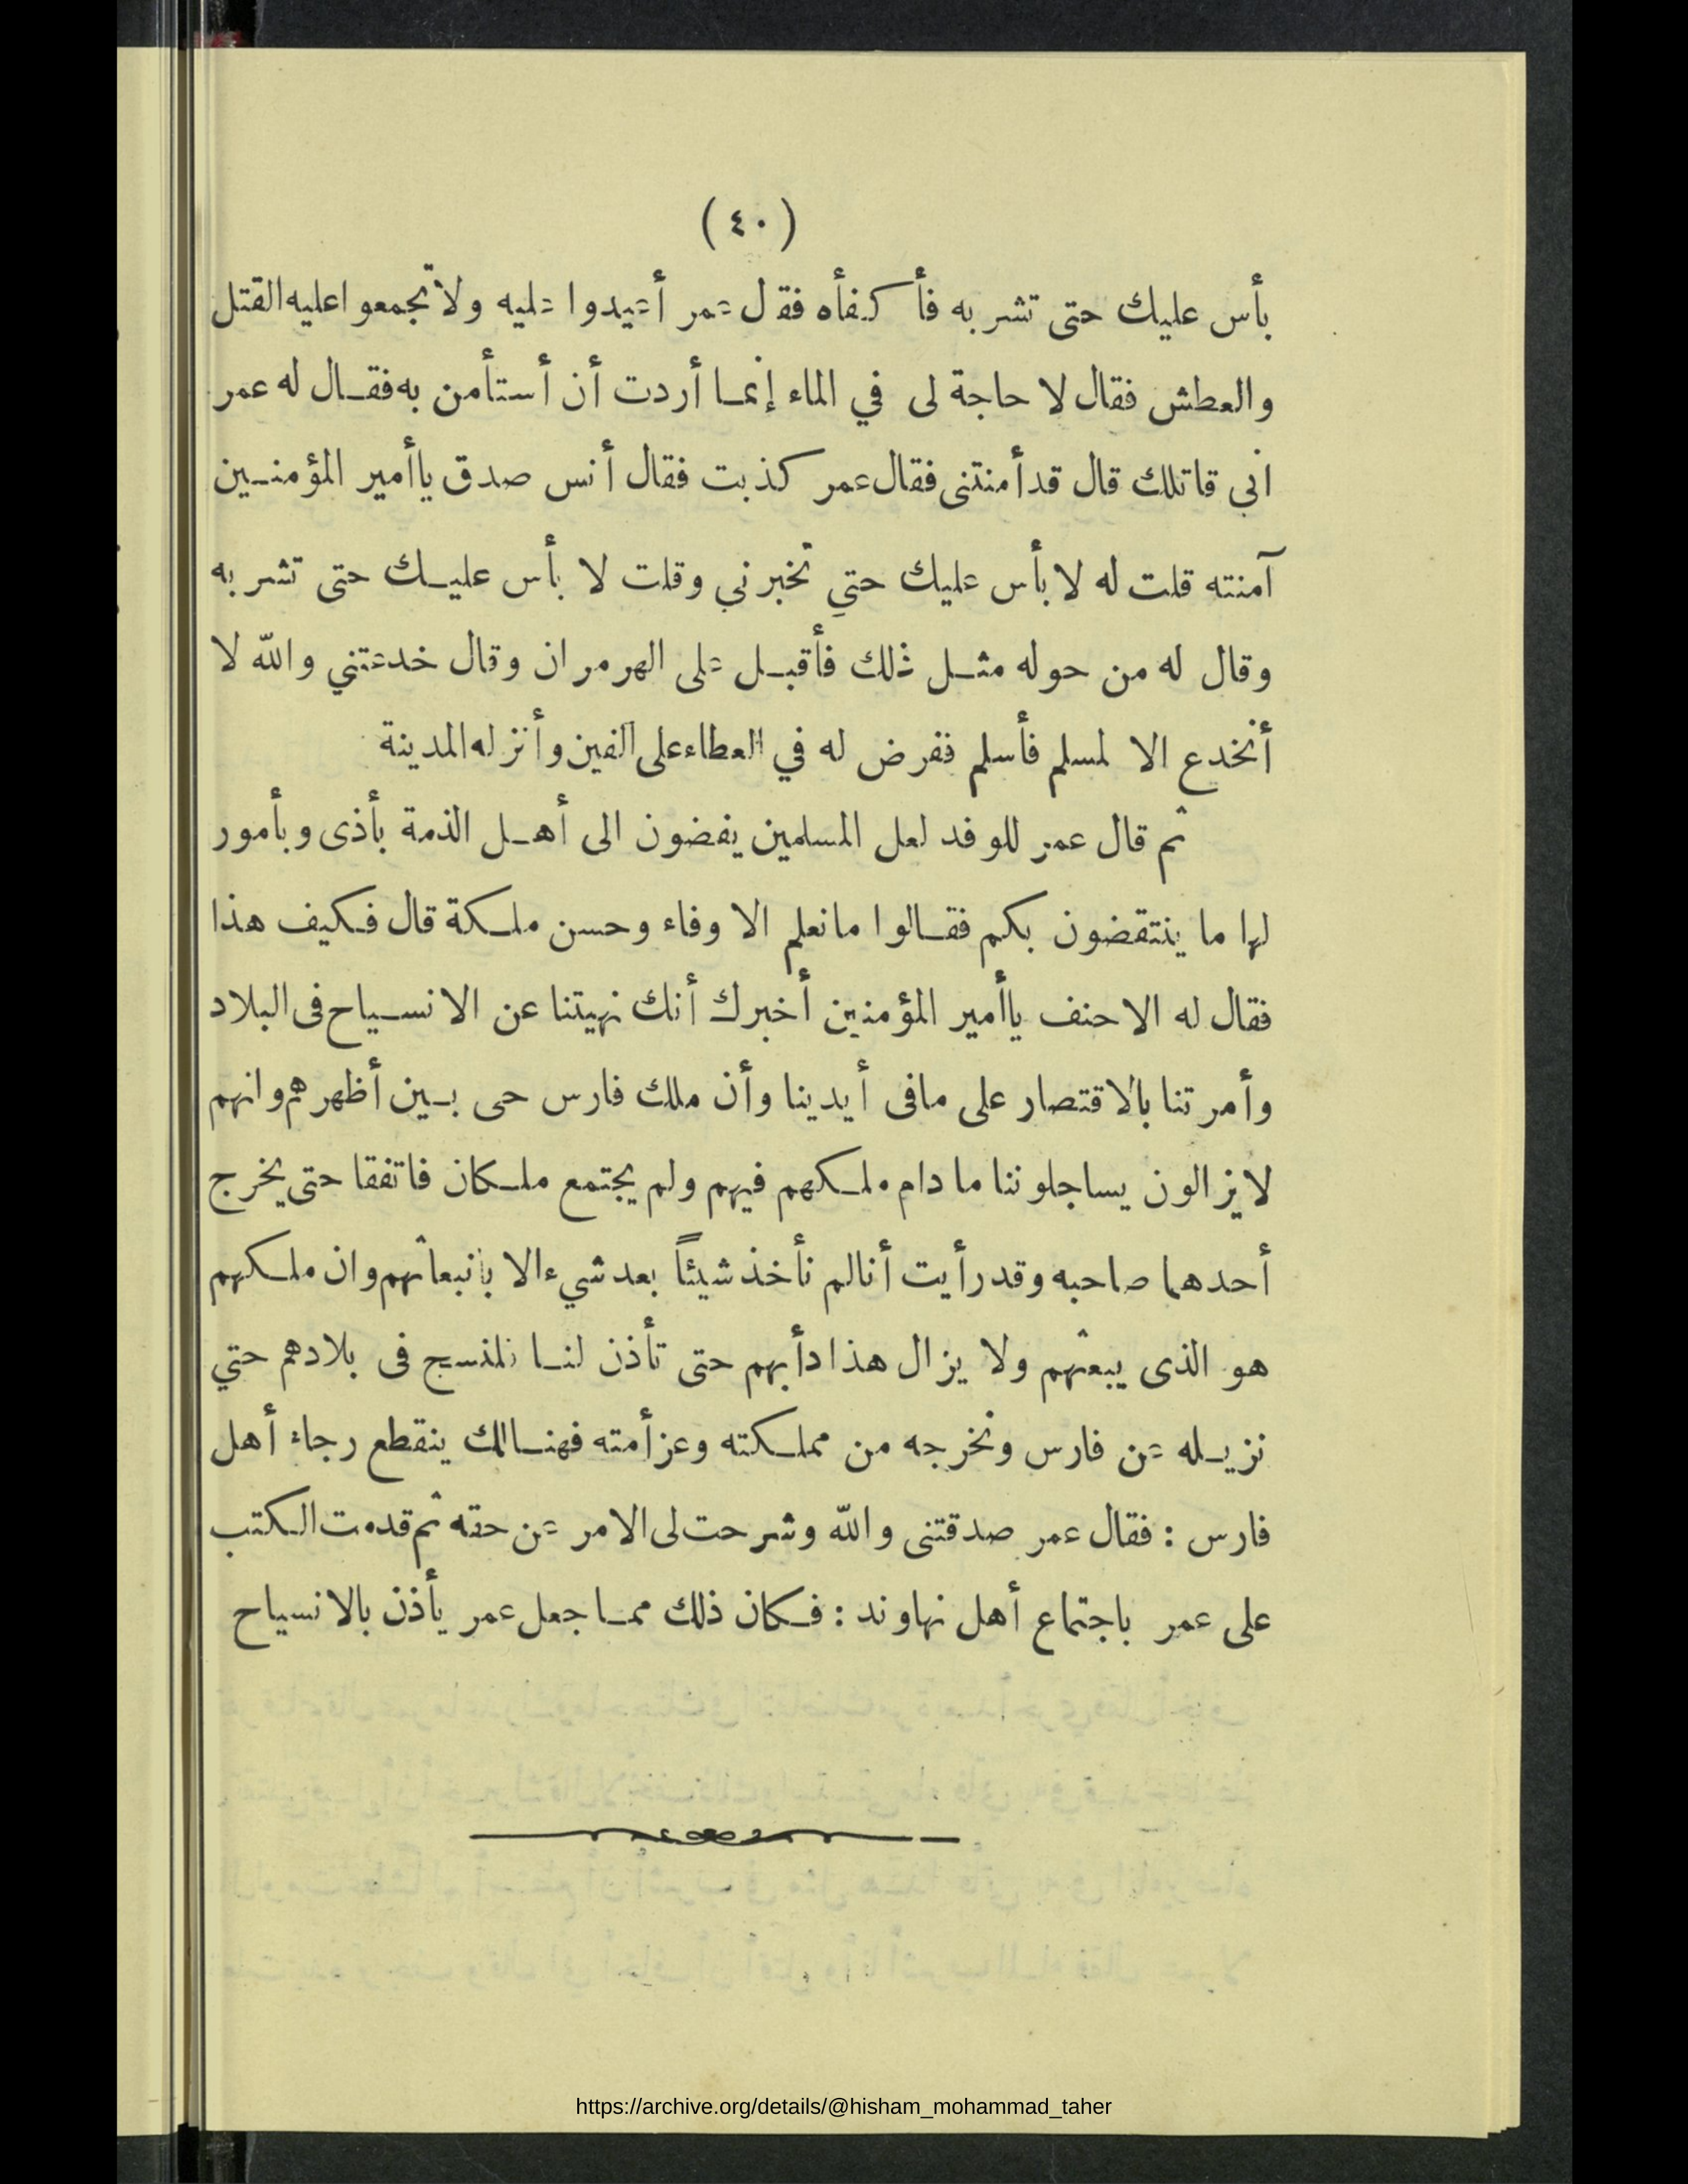 (٤٠)
بأس عليك حتى تشربه فأكفأه فقال عمر أعيدوا عليه ولا تجمعوا عليه القتل
والعطش فقال لا حاجة لى في الماء إنما أردت أن أستأمن به فقال له عمر
اني قاتلك قال قد أمنتنى فقال عمر كذبت فقال أنس صدق ياأمير المؤمنين
آمنته قلت له لا بأس عليك حتي تخبرني وقلت لا بأس عليك حتى تشربه
وقال له من حوله مثل ذلك فأقبل على الهرمران وقال خدعتني والله لا
أنخدع الا لمسلم فأسلم ففرض له في العطاء على ألفين وأنزله المدينة
ثم قال عمر للوفد لعل المسلمين يفضون الى أهل الذمة بأذى وبأمور
لها ما ينتقضون بكم فقالوا ما نعلم الا وفاء وحسن ملكة قال فكيف هذا
فقال له الاحنف ياأمير المؤمنين أخبرك أنك نهيتنا عن الانسياح فى البلاد
وأمرتنا بالاقتصار على مافى أيدينا وأن ملك فارس حى بين أظهرهم وانهم
لا يزالون يساجلوننا ما دام ملكهم فيهم ولم يجتمع ملكان فاتفقا حتى يخرج
أحدهما صاحبه وقد رأيت أنالم نأخذ شيئاً بعد شيء الا بانبعاثهم وان ملكهم
هو الذى يبعثهم ولا يزال هذا دأبهم حتى تأذن لنا فلنسح فى بلادهم حتي
نزيله عن فارس ونخرجه من مملكته وعز أمته فهنالك ينقطع رجاء أهل
فارس : فقال عمر صدقتنى والله وشرحت لى الامر عن حقه ثم قدمت الكتب
على عمر باجتماع أهل نهاوند : فكان ذلك مما جعل عمر يأذن بالانسياح
https://archive.org/details/@hisham_mohammad_taher